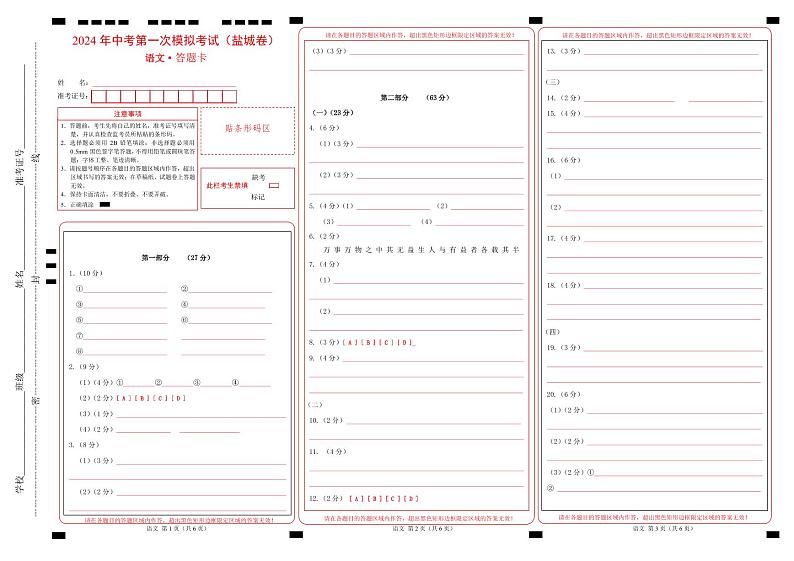 2024 年中考第一次模拟考试（盐城卷）
语文·答题卡
姓 名：
准考证号：
注意事项
1．答题前，考生先将自己的姓名，准考证号填写清
楚，并认真检查监考员所粘贴的条形码。
2．选择题必须用 2B 铅笔填涂；非选择题必须用
0.5mm 黑色签字笔答题，不得用铅笔或圆珠笔答
题；字体工整、笔迹清晰。
3．请按题号顺序在各题目的答题区域内作答，超出
区域书写的答案无效；在草稿纸、试题卷上答题
无效。
4．保持卡面清洁，不要折叠、不要弄破。
5．正确填涂
贴条形码区
此栏考生禁填
缺考
标记
准考证号
姓名
班级
学校
线
封
密
第一部分 （27 分）
1.（10 分）
①
②
③
④
⑤
⑥
⑦
⑧
2.（9 分）
（1）（4 分）① ② ③ ④
（2）（2 分）[ A ] [ B ] [ C ] [ D ]
（3）（1 分）
（4）（2 分）
3.（8 分）
（1）（3 分）
（2）（2 分）
请在各题目的答题区域内作答，超出黑色矩形边框限定区域的答案无效！
语文 第 1 页（共 6 页）
请在各题目的答题区域内作答，超出黑色矩形边框限定区域的答案无效！
（3）（3 分）
第二部分 （63 分）
（一）（23 分）
4.（6 分）
（1）（3 分）
（2）（3 分）
5.（4 分）（1） （2）
（3） （4）
6.（2 分）
万 事 万 物 之 中 其 无 益 生 人 与 有 益 者 各 载 其 半
7.（4 分）
（1）
（2）
8.（3 分）[ A ] [ B ] [ C ] [ D ]
9.（4 分）
（二）
10.（2 分）
11.（4 分）
12.（2 分） [ A ] [ B ] [ C ] [ D ]
请在各题目的答题区域内作答，超出黑色矩形边框限定区域的答案无效！
语文 第 2 页（共 6 页）
请在各题目的答题区域内作答，超出黑色矩形边框限定区域的答案无效！
13.（3 分）
（三）
14.（2 分）
15.（4 分）
16.（6 分）
（1）
（2）
17.（4 分）
18.（4 分）
（四）
19.（3 分）
20.（6 分）
（1）（2 分）
（2）（2 分）
（3）（2 分）①
②
请在各题目的答题区域内作答，超出黑色矩形边框限定区域的答案无效！
语文 第 3 页（共 6 页）